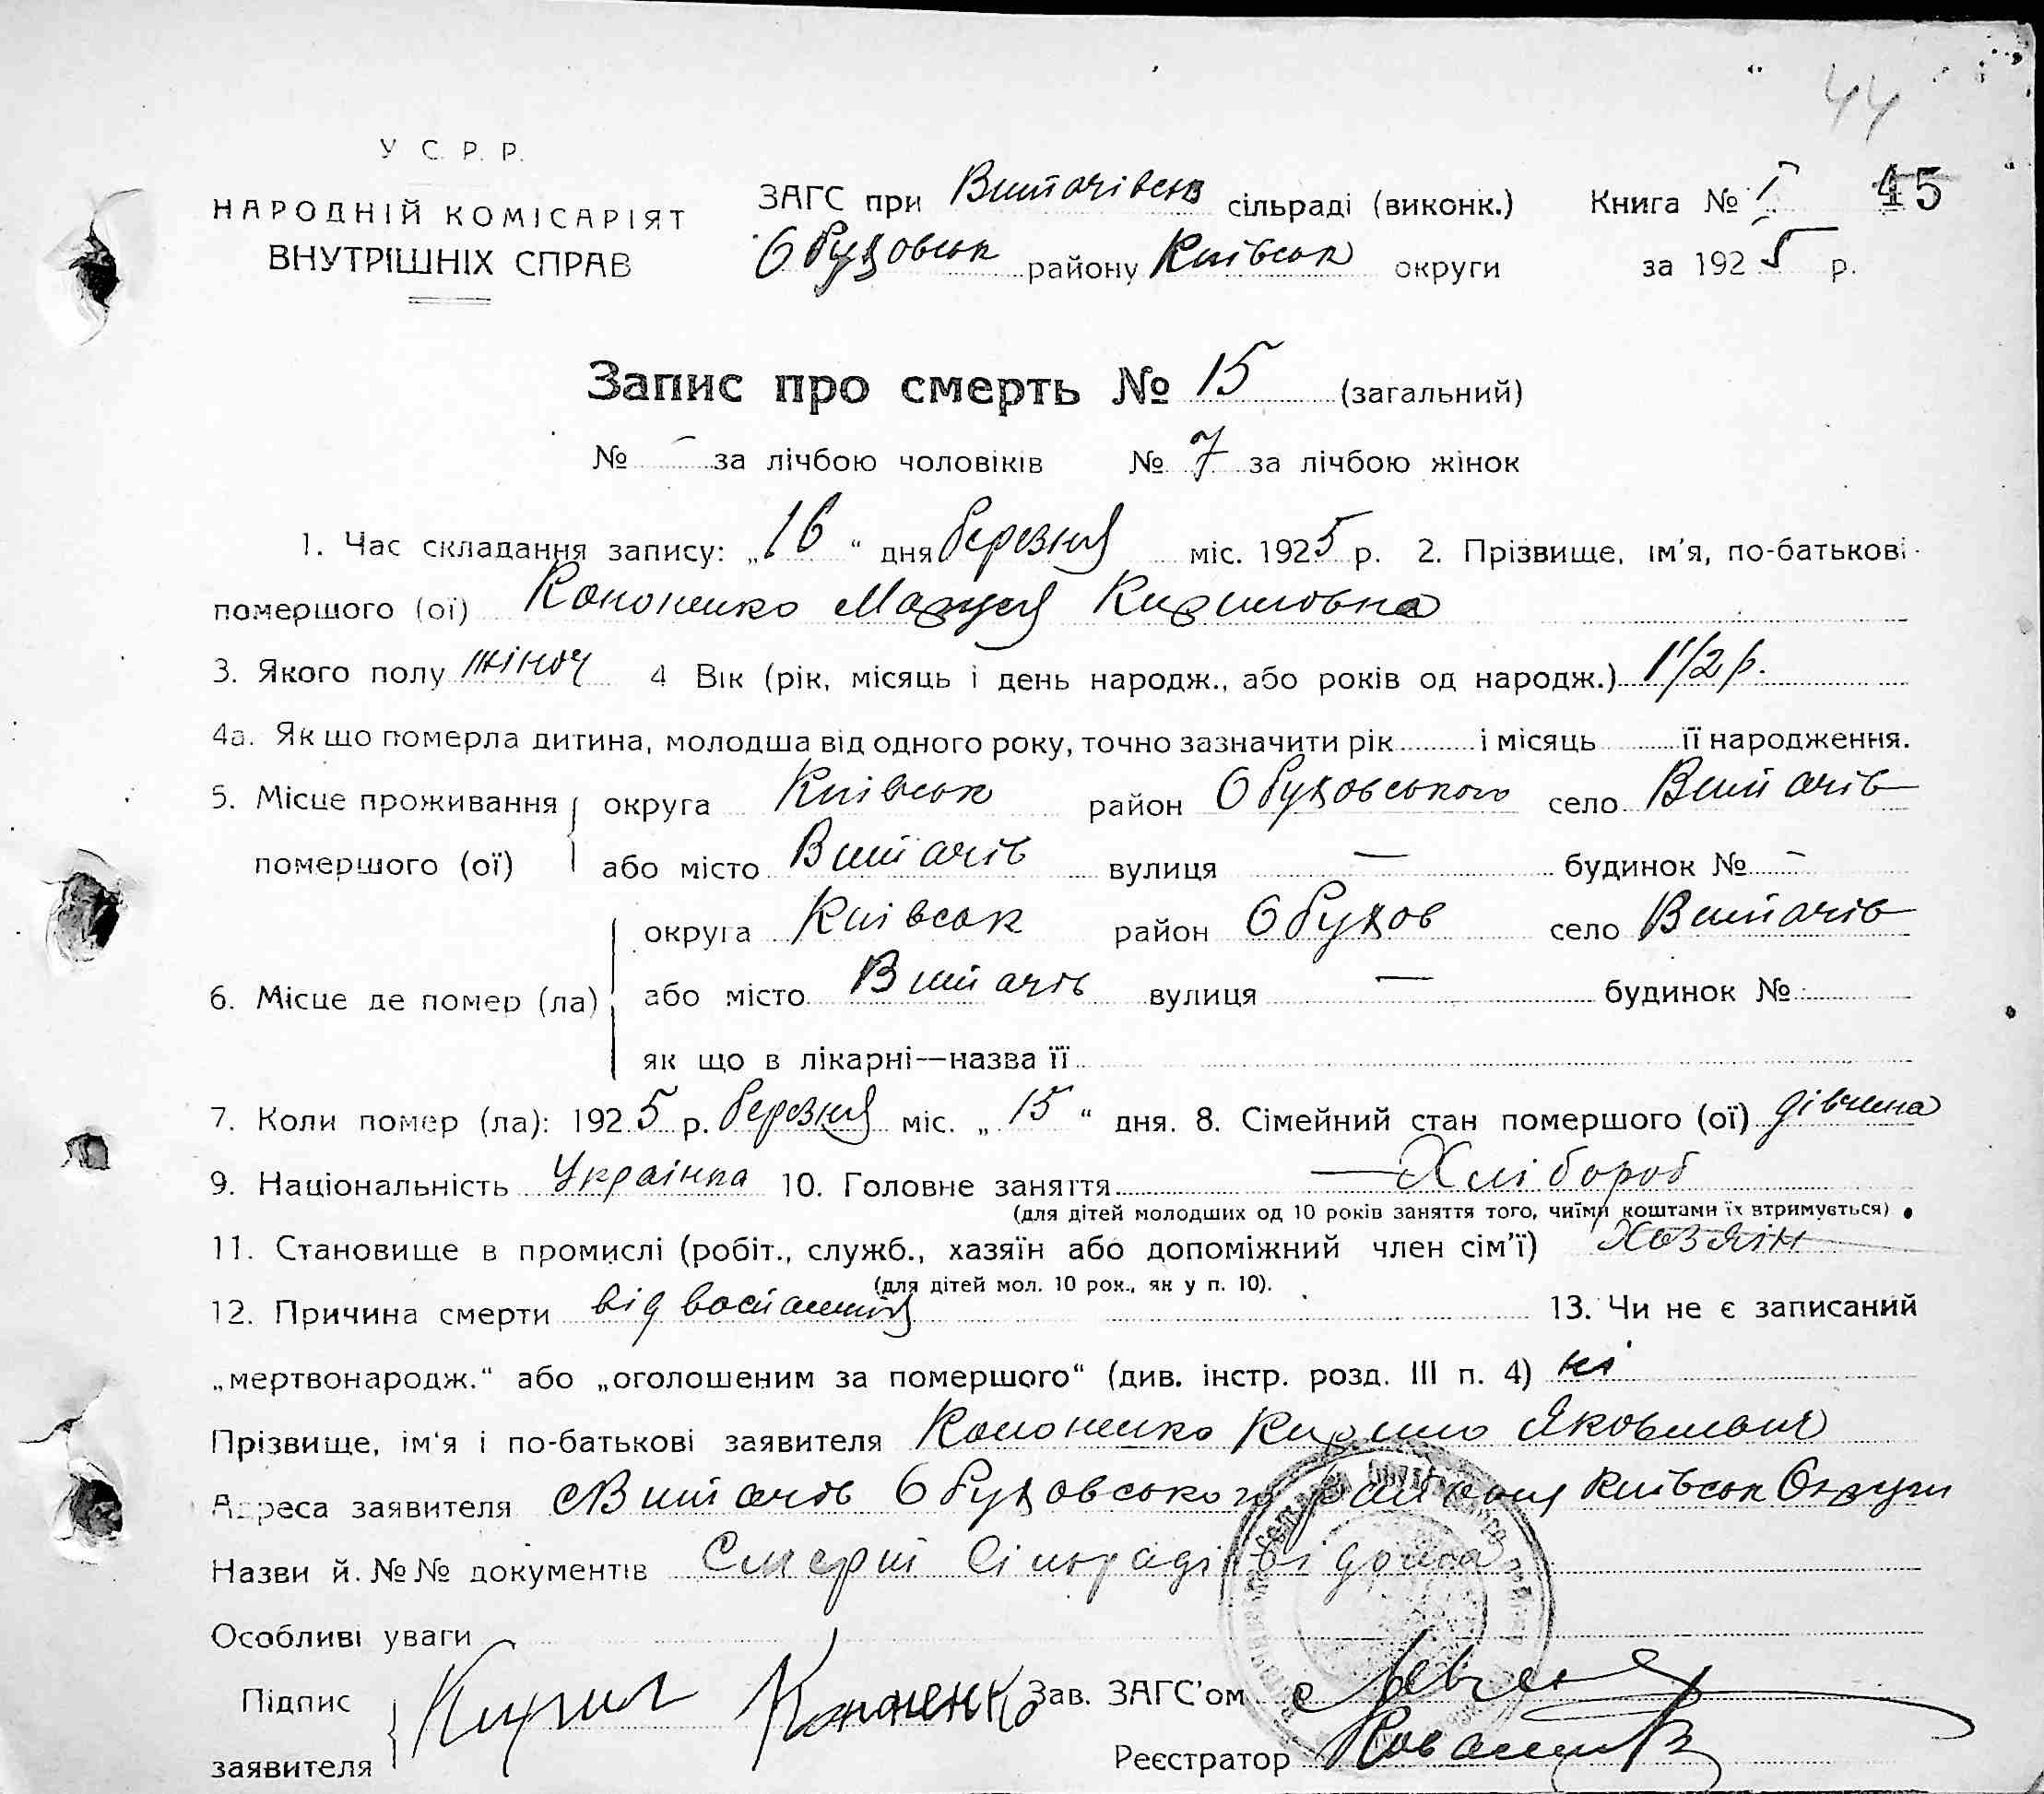 44
У С. Р. Р.
НАРОДНІЙ КОМІСАРІЯТ
ВНУТРІШНІХ СПРАВ
ЗАГС при Витачівськ сільраді (виконк.) Книга № I 45
Обуховськ району Київськ округи за 1925 р.
Запис про смерть № 15 (загальний)
№ - за лічбою чоловіків № 7 за лічбою жінок
1. Час складання запису: „16“ дня березня міс. 1925 р. 2. Прізвище, ім'я, по-батькові
помершого (ої) Кононенко Маруся Кириловна
3. Якого полу жіноч 4 Вік (рік, місяць і день народж., або років од народж.) 1 1/2 р.
4а. Як що померла дитина, молодша від одного року, точно зазначити рік і місяць її народження.
5. Місце проживання округа Київськ район Обуховського село Витачів
помершого (ої) або місто Витачів вулиця — будинок № -
округа Київськ район Обухов село Витачів
6. Місце де помер (ла) або місто Витачів вулиця — будинок №
як що в лікарні—назва її
7. Коли помер (ла): 1925 р. березня міс. „15“ дня. 8. Сімейний стан помершого (ої) дівчина
9. Національність Українка 10. Головне заняття — Хлібороб
(для дітей молодших од 10 років заняття того, чиїми коштами їх втримується)
11. Становище в промислі (робіт., служб., хазяїн або допоміжний член сім'ї) Хозяін
(для дітей мол. 10 рок., як у п. 10).
12. Причина смерти від воспаления 13. Чи не є записаний
„мертвонародж.“ або „оголошеним за помершого“ (див. інстр. розд. III п. 4) ні
Прізвище, ім'я і по-батькові заявителя Кононенко Кирило Яковлевич
Адреса заявителя с Витачів Обуховського району Київськ Округи
Назви й №№ документів Смерти Сільраді відома
Особливі уваги
Підпис заявителя Кирил Кононенко Зав. ЗАГС'ом
Реєстратор